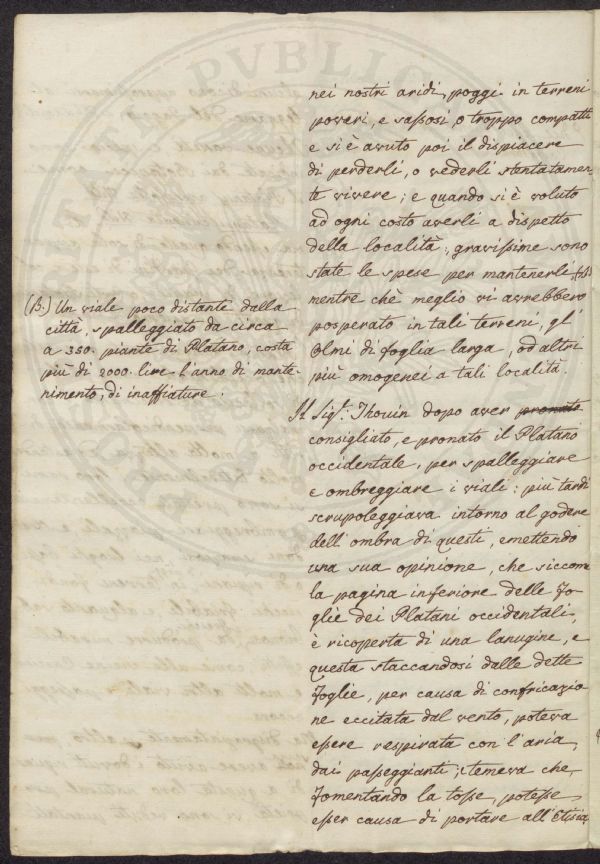 nei nostri aridi poggi in terreni
poveri, e sassosi, o troppo compatti
e si è avuto poi il dispiacere
di perderli, o vederli stentatamen-
te vivere; e quando si è voluto
ad ogni costo averli a dispetto
della località, gravissime sono
state le spese per mantenerli, (B.)
mentre chè meglio vi avrebbero
posperato in tali terreni, gl'
Olmi di foglia larga, od altri
più omogenei a tali località.
Il Sigr. Thouin dopo aver pronato
consigliato, e pronato il Platano
occidentale, per spalleggiare
e ombreggiare i viali: più tardi
scrupoleggiava intorno al godere
dell'ombra di questi, emettendo
una sua opinione, che siccome
la pagina inferiore delle fo-
glie dei Platani occidentali,
è ricoperta di una lanugine, e
questa staccandosi dalle dette
foglie, per causa di confricazio
ne eccitata dal vento, poteva
essere respirata con l'aria,
dai passeggianti; temeva che,
fomentando la tosse, potesse
esser causa di portare all'Etisia,
(B.) Un viale poco distante dalla
città, spalleggiato da circa
a 350. piante di Platano, costa
più di 2000. lire l'anno di mante-
nimento, di inaffiature.
PVBLIC